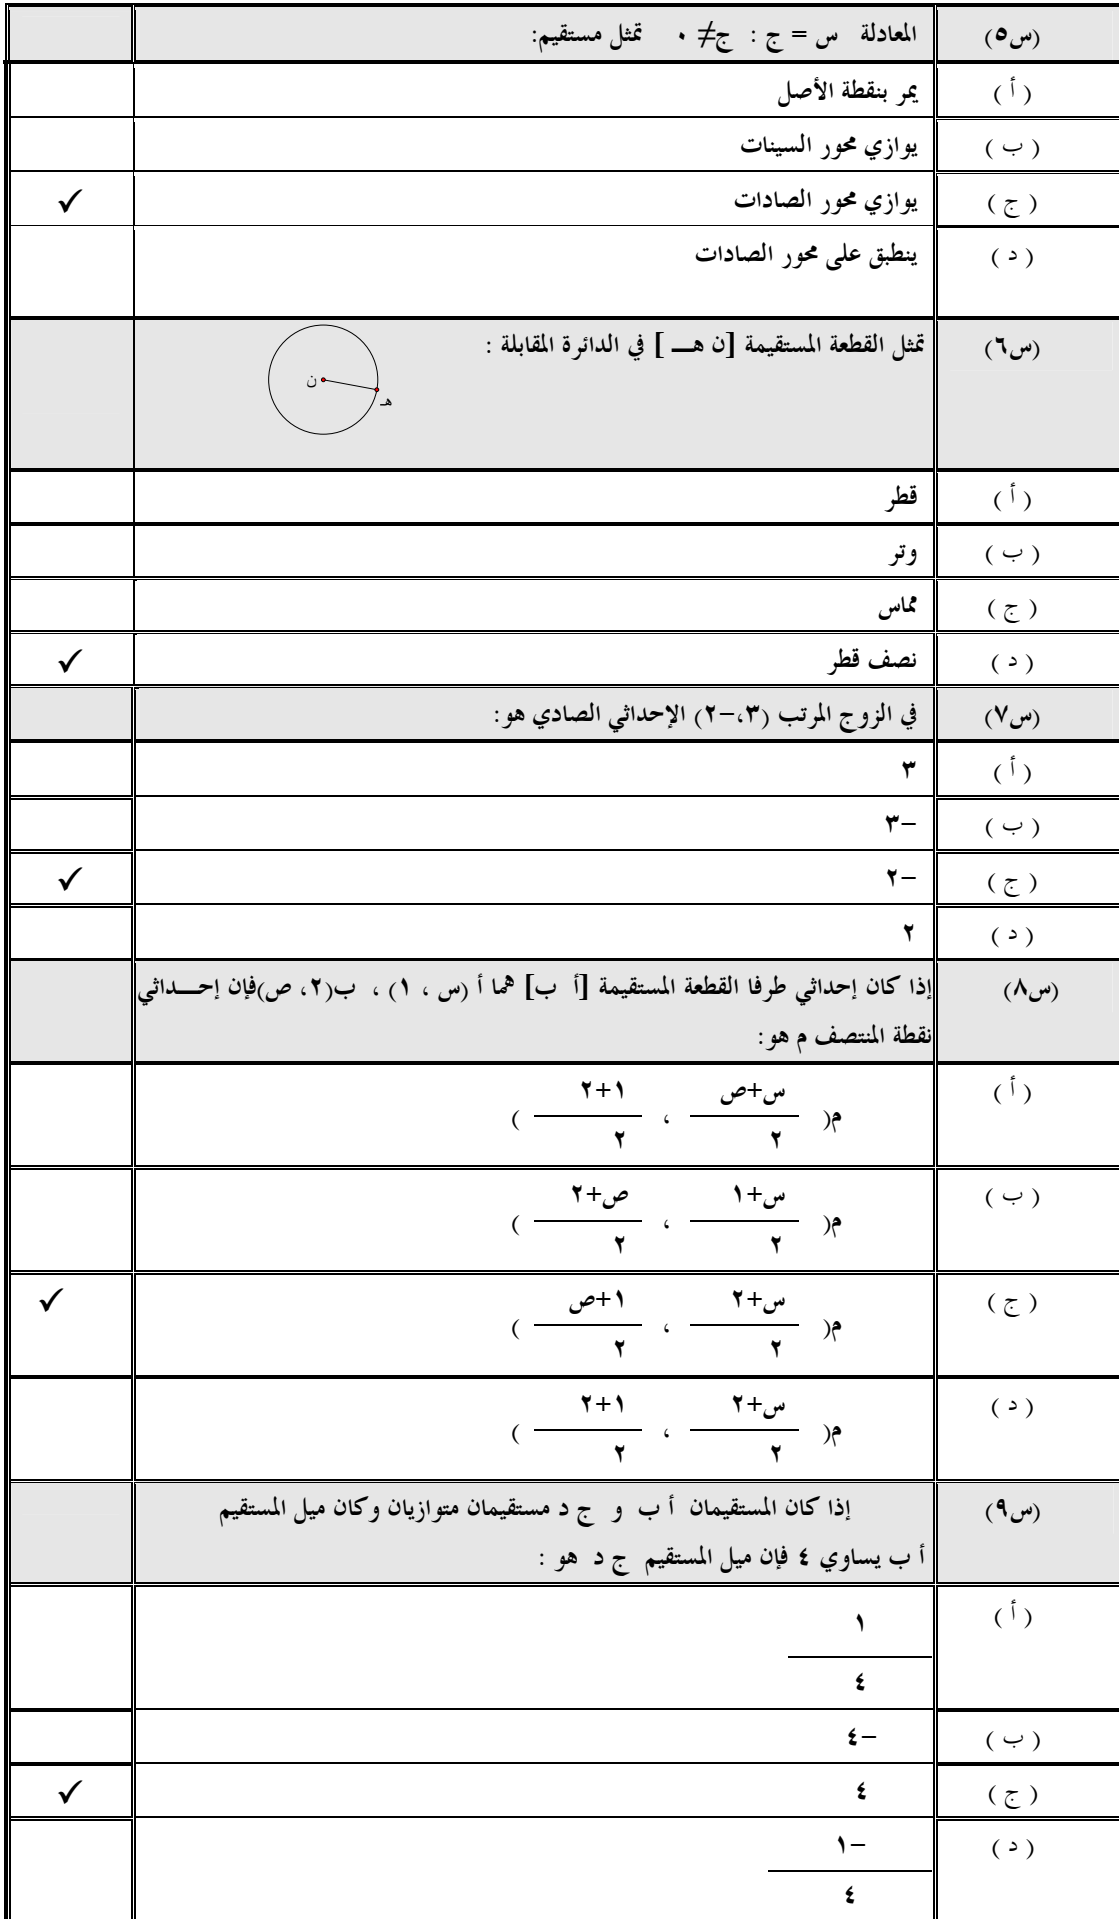 (س٥) المعادلة س = ج : ج≠ ٠ تمثل مستقيم:
( أ ) يمر بنقطة الأصل
( ب ) يوازي محور السينات
( ج ) يوازي محور الصادات ✓
( د ) ينطبق على محور الصادات
(س٦) تمثل القطعة المستقيمة [ن هـــ ] في الدائرة المقابلة :
ن
هـ
( أ ) قطر
( ب ) وتر
( ج ) مماس
( د ) نصف قطر ✓
(س٧) في الزوج المرتب (٣،-٢) الإحداثي الصادي هو:
( أ ) ٣
( ب ) -٣
( ج ) -٢ ✓
( د ) ٢
(س٨) إذا كان إحداثي طرفا القطعة المستقيمة [أ ب] هما أ (س ، ١) ، ب(٢، ص)فإن إحـــداثي
نقطة المنتصف م هو:
( أ ) س+ص ١+٢
م( ــــ ، ــــ )
٢ ٢
( ب ) س+١ ص+٢
م( ــــ ، ــــ )
٢ ٢
( ج ) س+٢ ١+ص ✓
م( ــــ ، ــــ )
٢ ٢
( د ) س+٢ ١+٢
م( ــــ ، ــــ )
٢ ٢
(س٩) إذا كان المستقيمان أ ب و ج د مستقيمان متوازيان وكان ميل المستقيم
أ ب يساوي ٤ فإن ميل المستقيم ج د هو :
( أ ) ١
٤
( ب ) -٤
( ج ) ٤ ✓
( د ) -١
٤